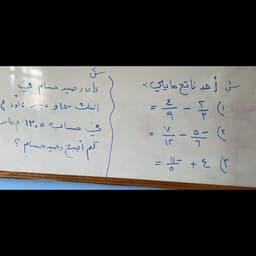 س أجد ناتج ما يأتي :-
١) ٢/٣ − ٤/٩ =
٢) −٥/٦ − ٧/١٢ =
٣) ٤ + −١١/٥ =
س
كان رصيد حسام في
البنك دينار، أودع
في حسابه ١٣٠٥ دينار
كم أصبح رصيد حسام ؟